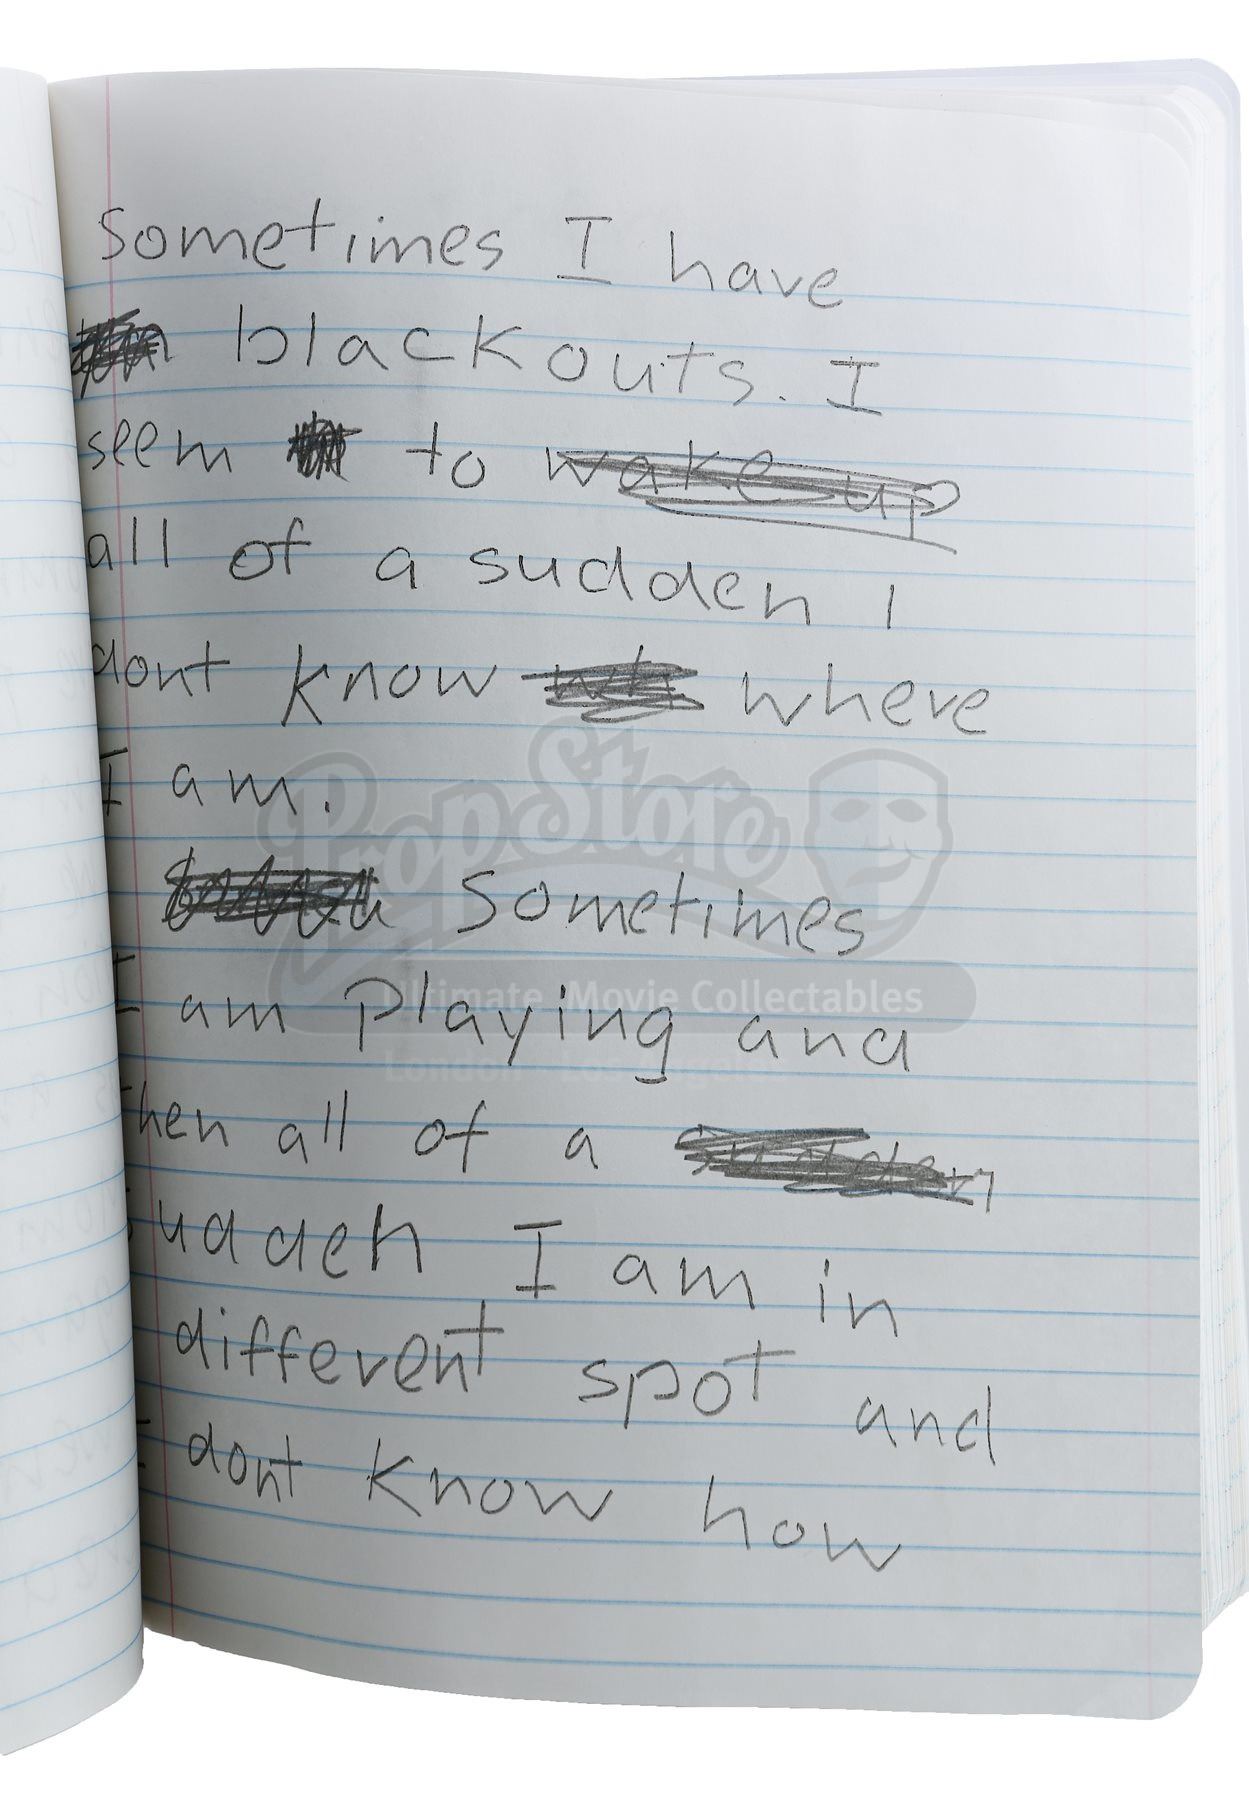 Sometimes I have
blackouts. I
seem to wake up
all of a sudden I
dont know wh where
I am.
Sometimes
I am Playing and
then all of a sudden
sudden I am in
different spot and
I dont know how
PropStore
Ultimate Movie Collectables
London - Los Angeles